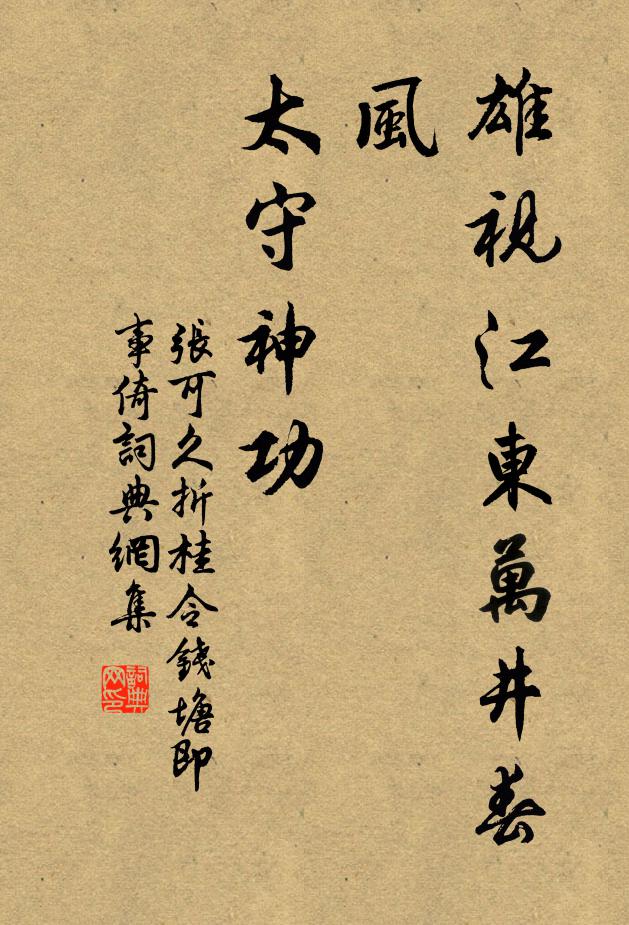 雄視江東萬井春
風
太守神功
張可久折桂令錢塘即
事倚詞典網集
詞典
网印